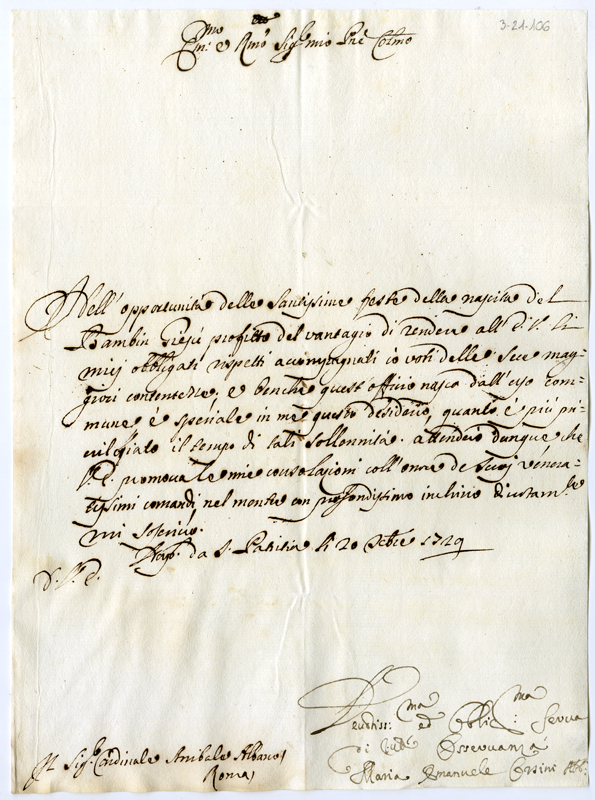 3-21-106
Emo: e Rmo Sig.r mio Pne Colmo
Nell' opportunità delle Santissime feste della nascita del
Bambin Giesù profitto del vantagio di rendere all' E. V. li
miei obbligati rispetti acompagnati co voti delle sue mag=
giori contentezze; e benche quest' officio nasca dall' uso com=
mune è speciale in me questo desiderio, quanto è più pri=
vilegiato il tempo di tali sollennità. attenderò dunque che
V. E. promova le mie consolazioni coll' onore de suoi venera=
tissimi comandi nel mentre con profondissimo inchino
mi soscrivo.
Nap. da S. Patritia li 20 Xbre 1729
D. V. E.
Devotiss:ma ed Obblig:ma Serva
di Osservanza
Maria Emanuele Orsini Abb:
Sig.r Cardinale Anibale Albano
Roma